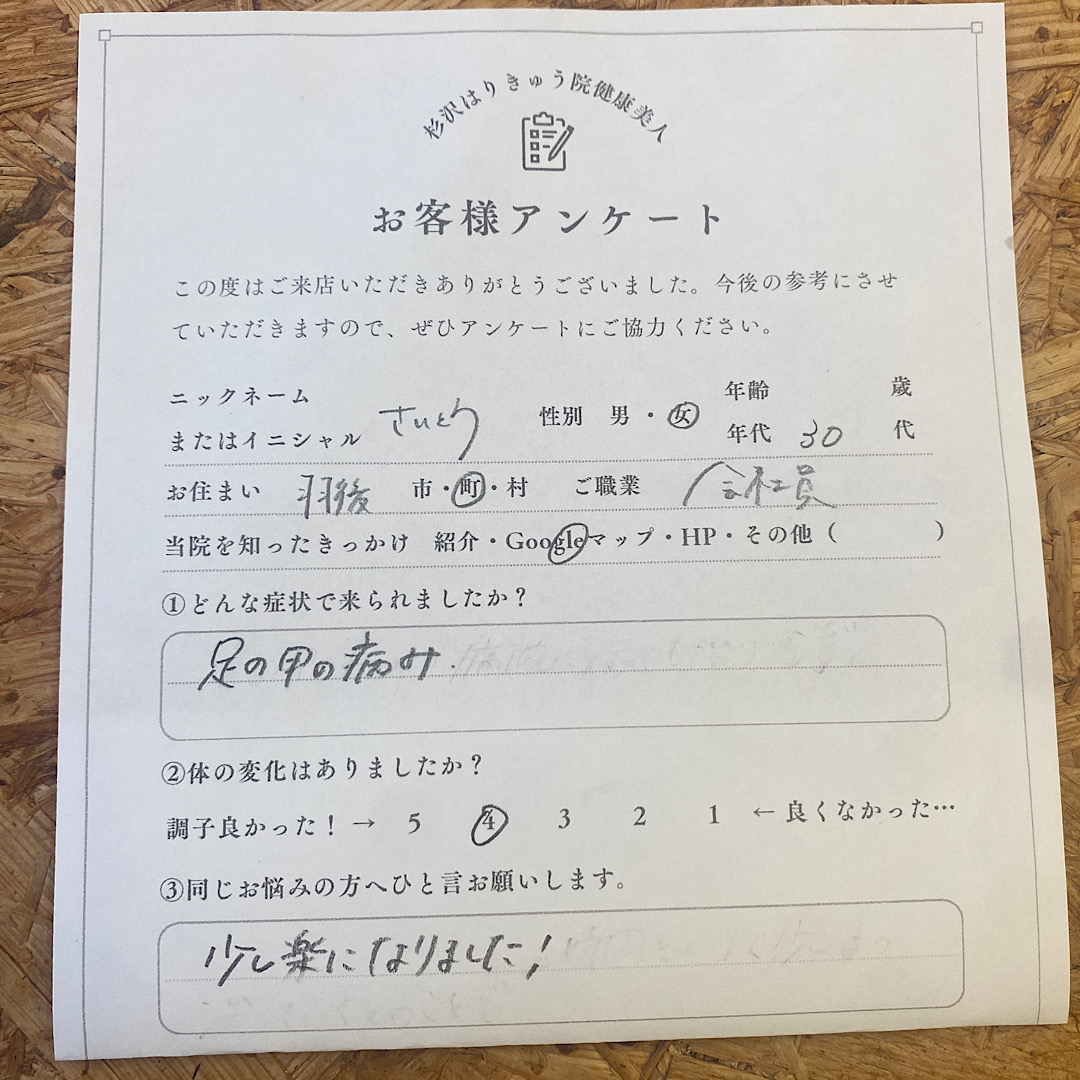 杉沢はりきゅう院健康美人
お客様アンケート
この度はご来店いただきありがとうございました。今後の参考にさせ
ていただきますので、ぜひアンケートにご協力ください。
ニックネーム
またはイニシャル さいとう 性別 男・女 年齢 歳
年代 30 代
お住まい 羽後 市・町・村 ご職業 会社員
当院を知ったきっかけ 紹介・Googleマップ・HP・その他( )
①どんな症状で来られましたか？
足の甲の痛み
②体の変化はありましたか？
調子良かった！→ 5 4 3 2 1 ←良くなかった…
③同じお悩みの方へひと言お願いします。
少し楽になりました！